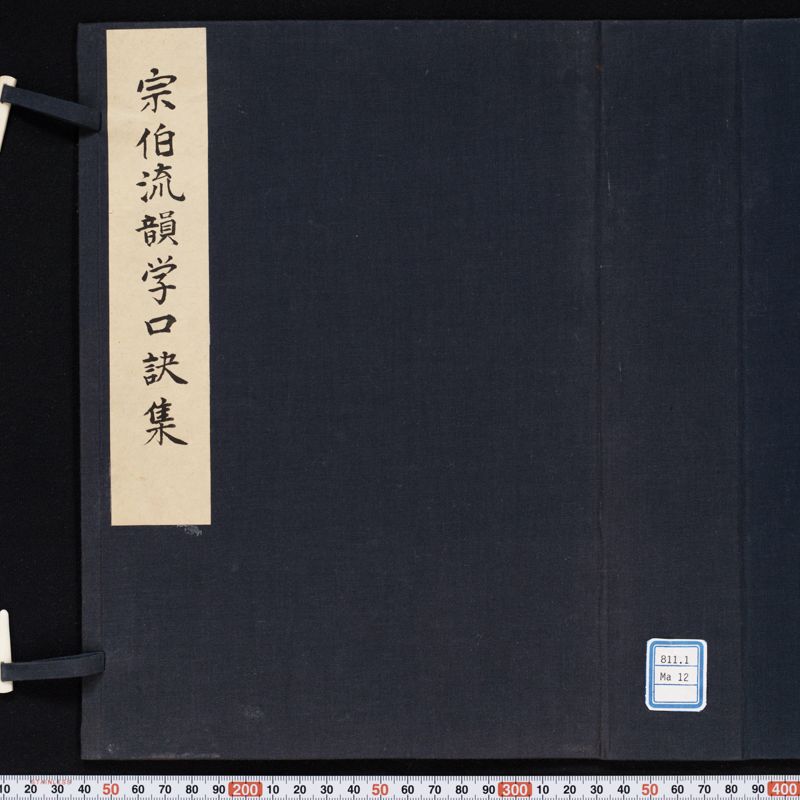 宗伯流韻学口訣集
811.1
Ma 12
STAINLESS
10 20 30 40 50 60 70 80 90 200 10 20 30 40 50 60 70 80 90 300 10 20 30 40 50 60 70 80 90 400